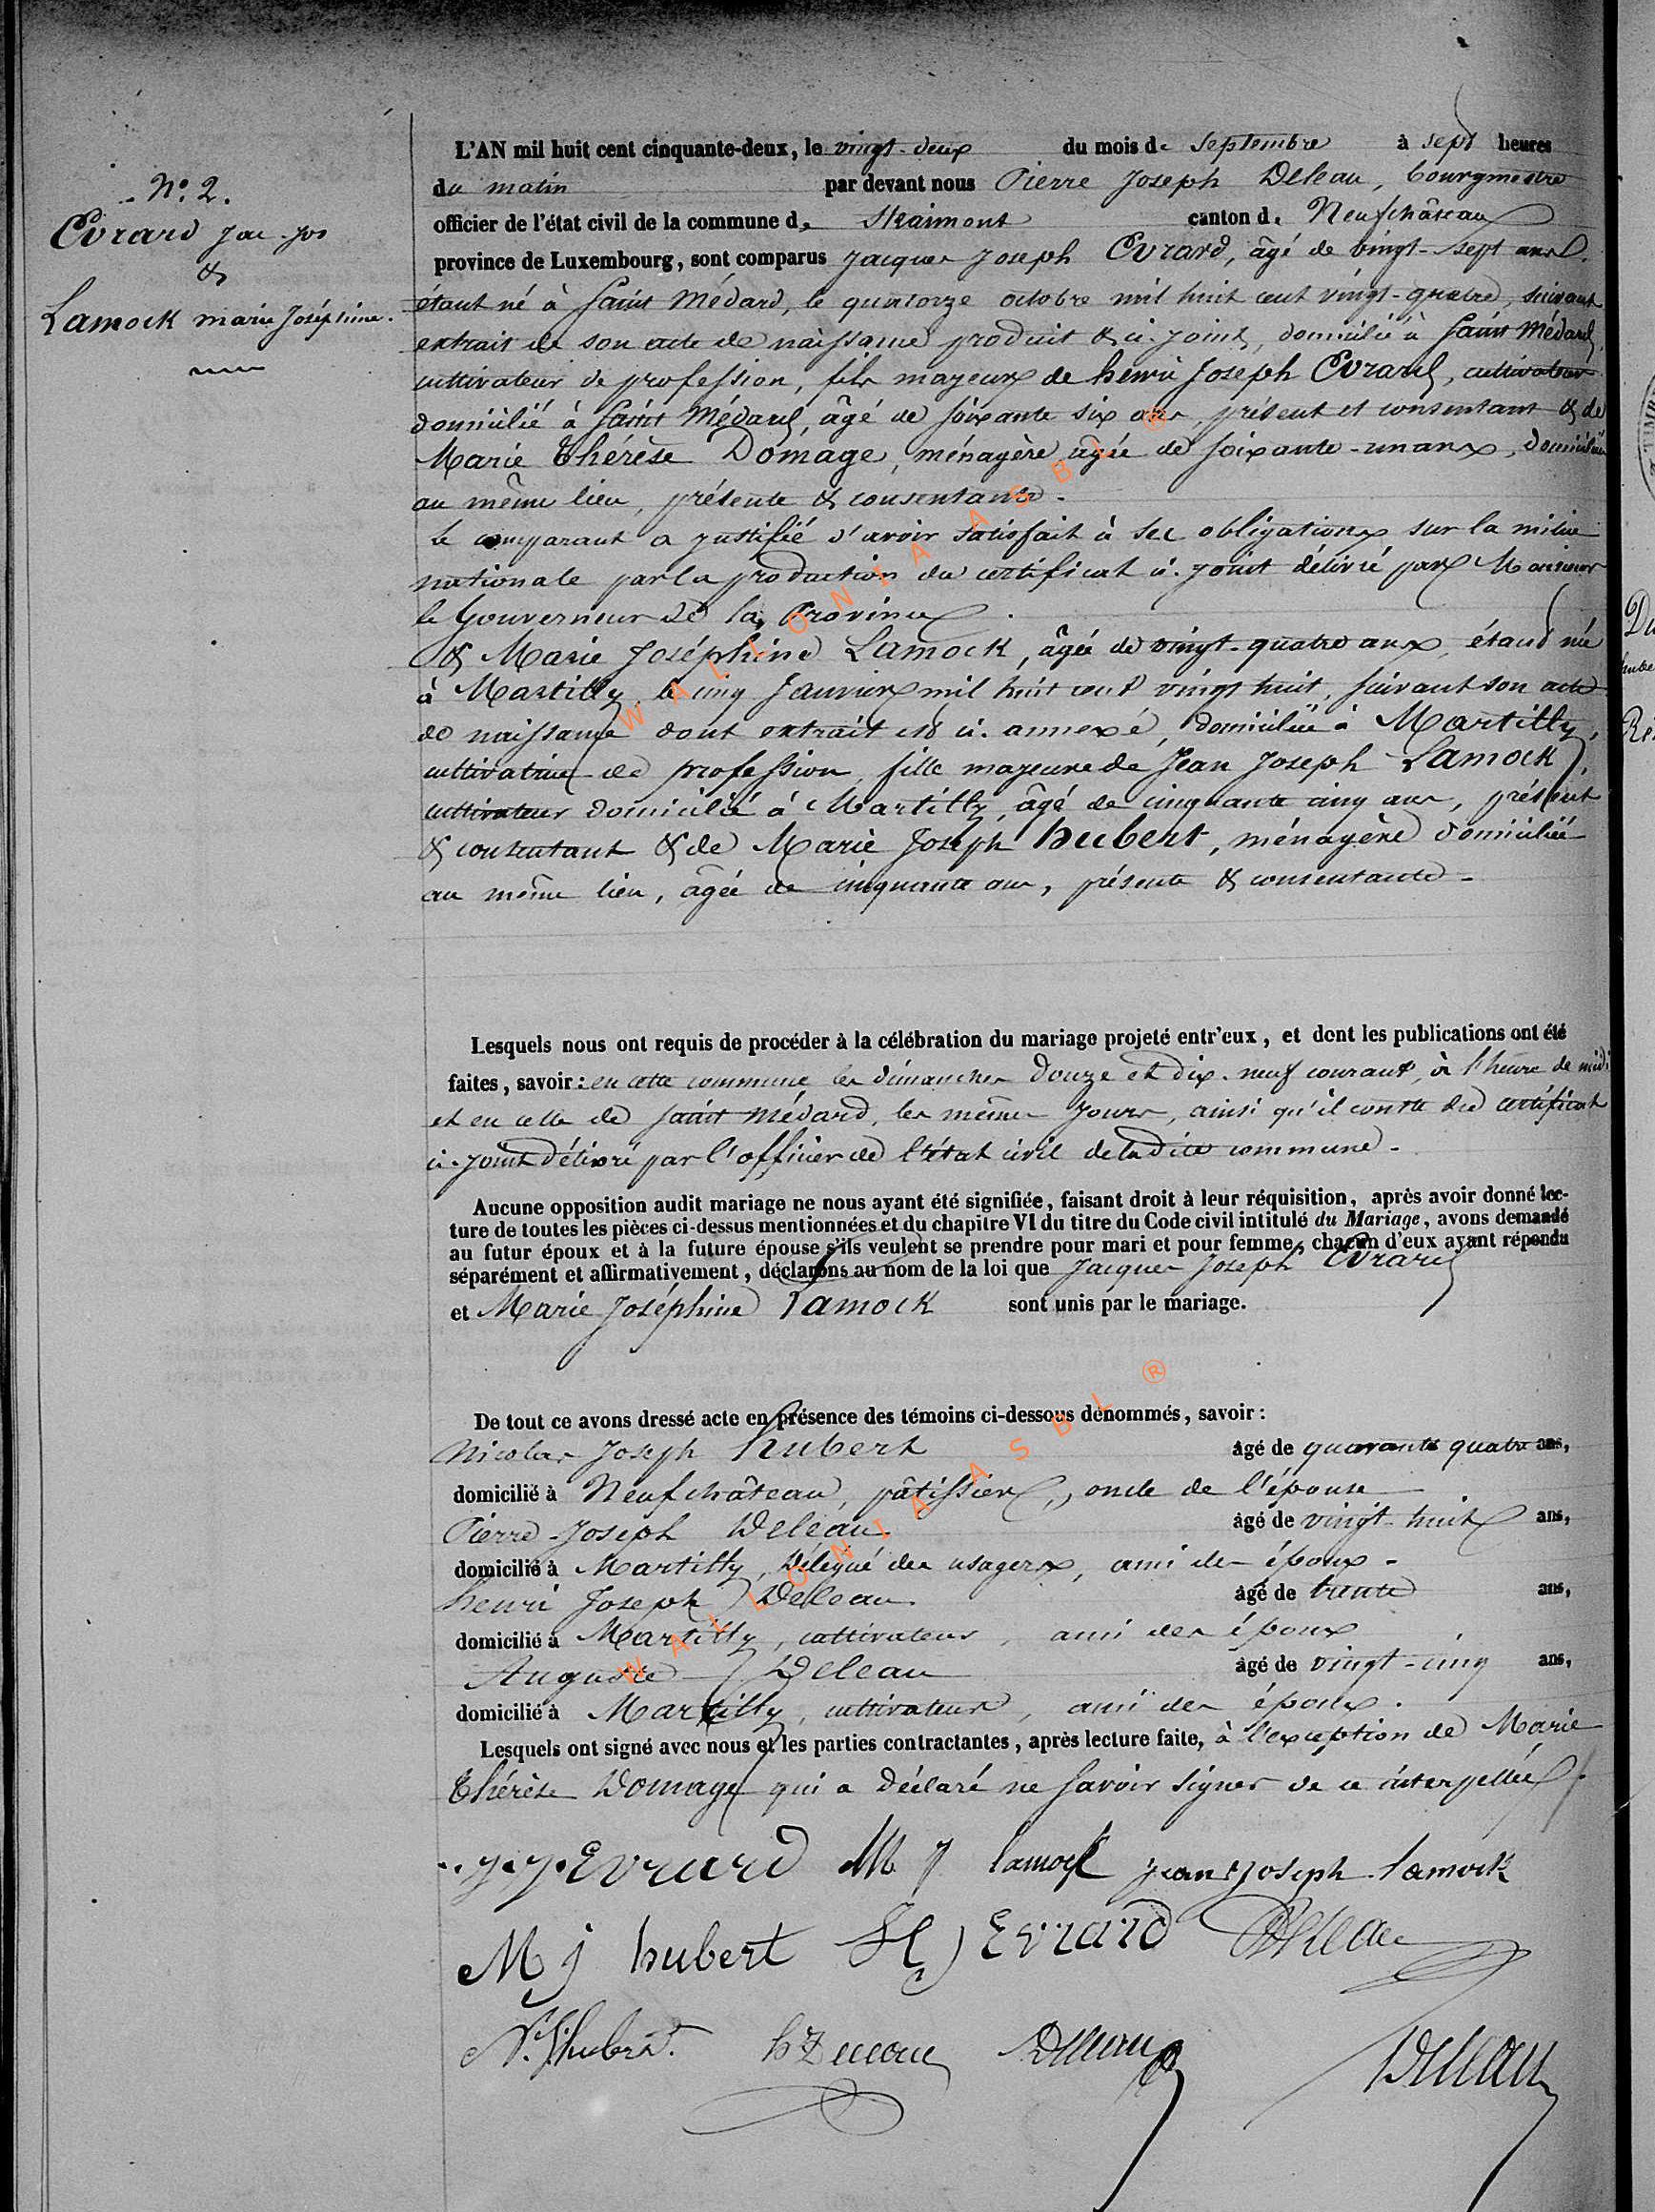 N.° 2.
Evrard Jac-Jos
&
Lamock marie Joséphine.
L'AN mil huit cent cinquante-deux, le vingt-deux du mois de Septembre à sept heures
du matin par devant nous Pierre Joseph Deleau, bourgmestre
officier de l'état civil de la commune de Straimont canton de Neufchâteau
province de Luxembourg, sont comparus Jacques Joseph Evrard, âgé de vingt-sept ans
étant né à Saint Médard, le quatorze octobre mil huit cent vingt-quatre, suivant
extrait de son acte de naissance produit & ci-joint, domicilié à Saint Médard,
cultivateur de profession, fils majeur de henri Joseph Evrard, cultivateur
domicilié à Saint Médard, âgé de soixante six ans, présent et consentant & de
Marie Thérèse Domage, ménagère âgée de soixante-un ans, domiciliée
au même lieu, présente & consentante.
le comparant a justifié d'avoir satisfait à ses obligations sur la milice
nationale par la production du certificat ci-joint délivré par Monsieur
le Gouverneur de la Province.
& Marie Joséphine Lamock, âgée de vingt-quatre ans, étant née
à Martilly, le cinq Janvier mil huit cent vingt huit, suivant son acte
de naissance dont extrait est ci-annexé, domiciliée à Martilly,
cultivatrice de profession, fille majeure de Jean Joseph Lamock,
cultivateur domicilié à Martilly, âgé de cinquante cinq ans, présent
& consentant & de Marie Joseph hubert, ménagère domiciliée
au même lieu, âgée de cinquante ans, présente & consentante.
Lesquels nous ont requis de procéder à la célébration du mariage projeté entr'eux, et dont les publications ont été
faites, savoir: en cette commune les dimanches douze et dix-neuf courant, à l'heure de midi
et en celle de Saint Médard, les mêmes jours, ainsi qu'il conste du certificat
ci-joint délivré par l'officier de l'état civil de la dite commune.
Aucune opposition audit mariage ne nous ayant été signifiée, faisant droit à leur réquisition, après avoir donné lec-
ture de toutes les pièces ci-dessus mentionnées et du chapitre VI du titre du Code civil intitulé du Mariage, avons demandé
au futur époux et à la future épouse s'ils veulent se prendre pour mari et pour femme, chacun d'eux ayant répondu
séparément et affirmativement, déclarons au nom de la loi que Jacques Joseph Evrard
et Marie Joséphine Lamock sont unis par le mariage.
De tout ce avons dressé acte en présence des témoins ci-dessous dénommés, savoir:
Nicolas Joseph hubert âgé de quarante quatre ans,
domicilié à Neufchâteau, pâtissier, oncle de l'épouse
Pierre-Joseph Deleau âgé de vingt-huit ans,
domicilié à Martilly, délégué des usagers, ami des époux.
henri Joseph Deleau âgé de trente ans,
domicilié à Martilly, cultivateur, ami des époux
Auguste Deleau âgé de vingt-cinq ans,
domicilié à Martilly, cultivateur, ami des époux.
Lesquels ont signé avec nous et les parties contractantes, après lecture faite, à l'exception de Marie
Thérèse Domage qui a déclaré ne savoir signer de ce interpellée.
j.j. Evrard M J lamock jean joseph lamock
M j hubert H J Evrard Deleau
N. J. hubert. h Deleau Deleau Deleau
WALLONIA ASBL ®
WALLONIA ASBL ®